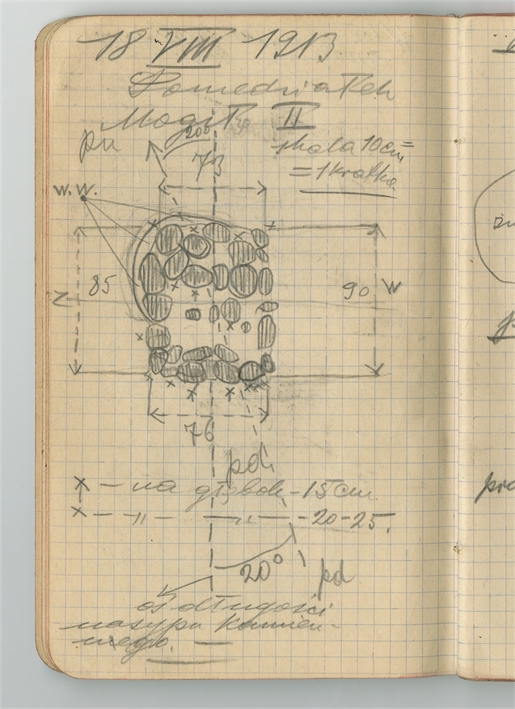 18 VIII 1913
Poniedziałek
Mogiła II
skala 10 cm =
= 1 kratka
pn
20°
73
w.w.
85
Z
90 W
76
pd
x – na głębok – 15 cm.
x – " – – " – 20-25.
20°
pd
oś długości
nasypu kamien-
nego.